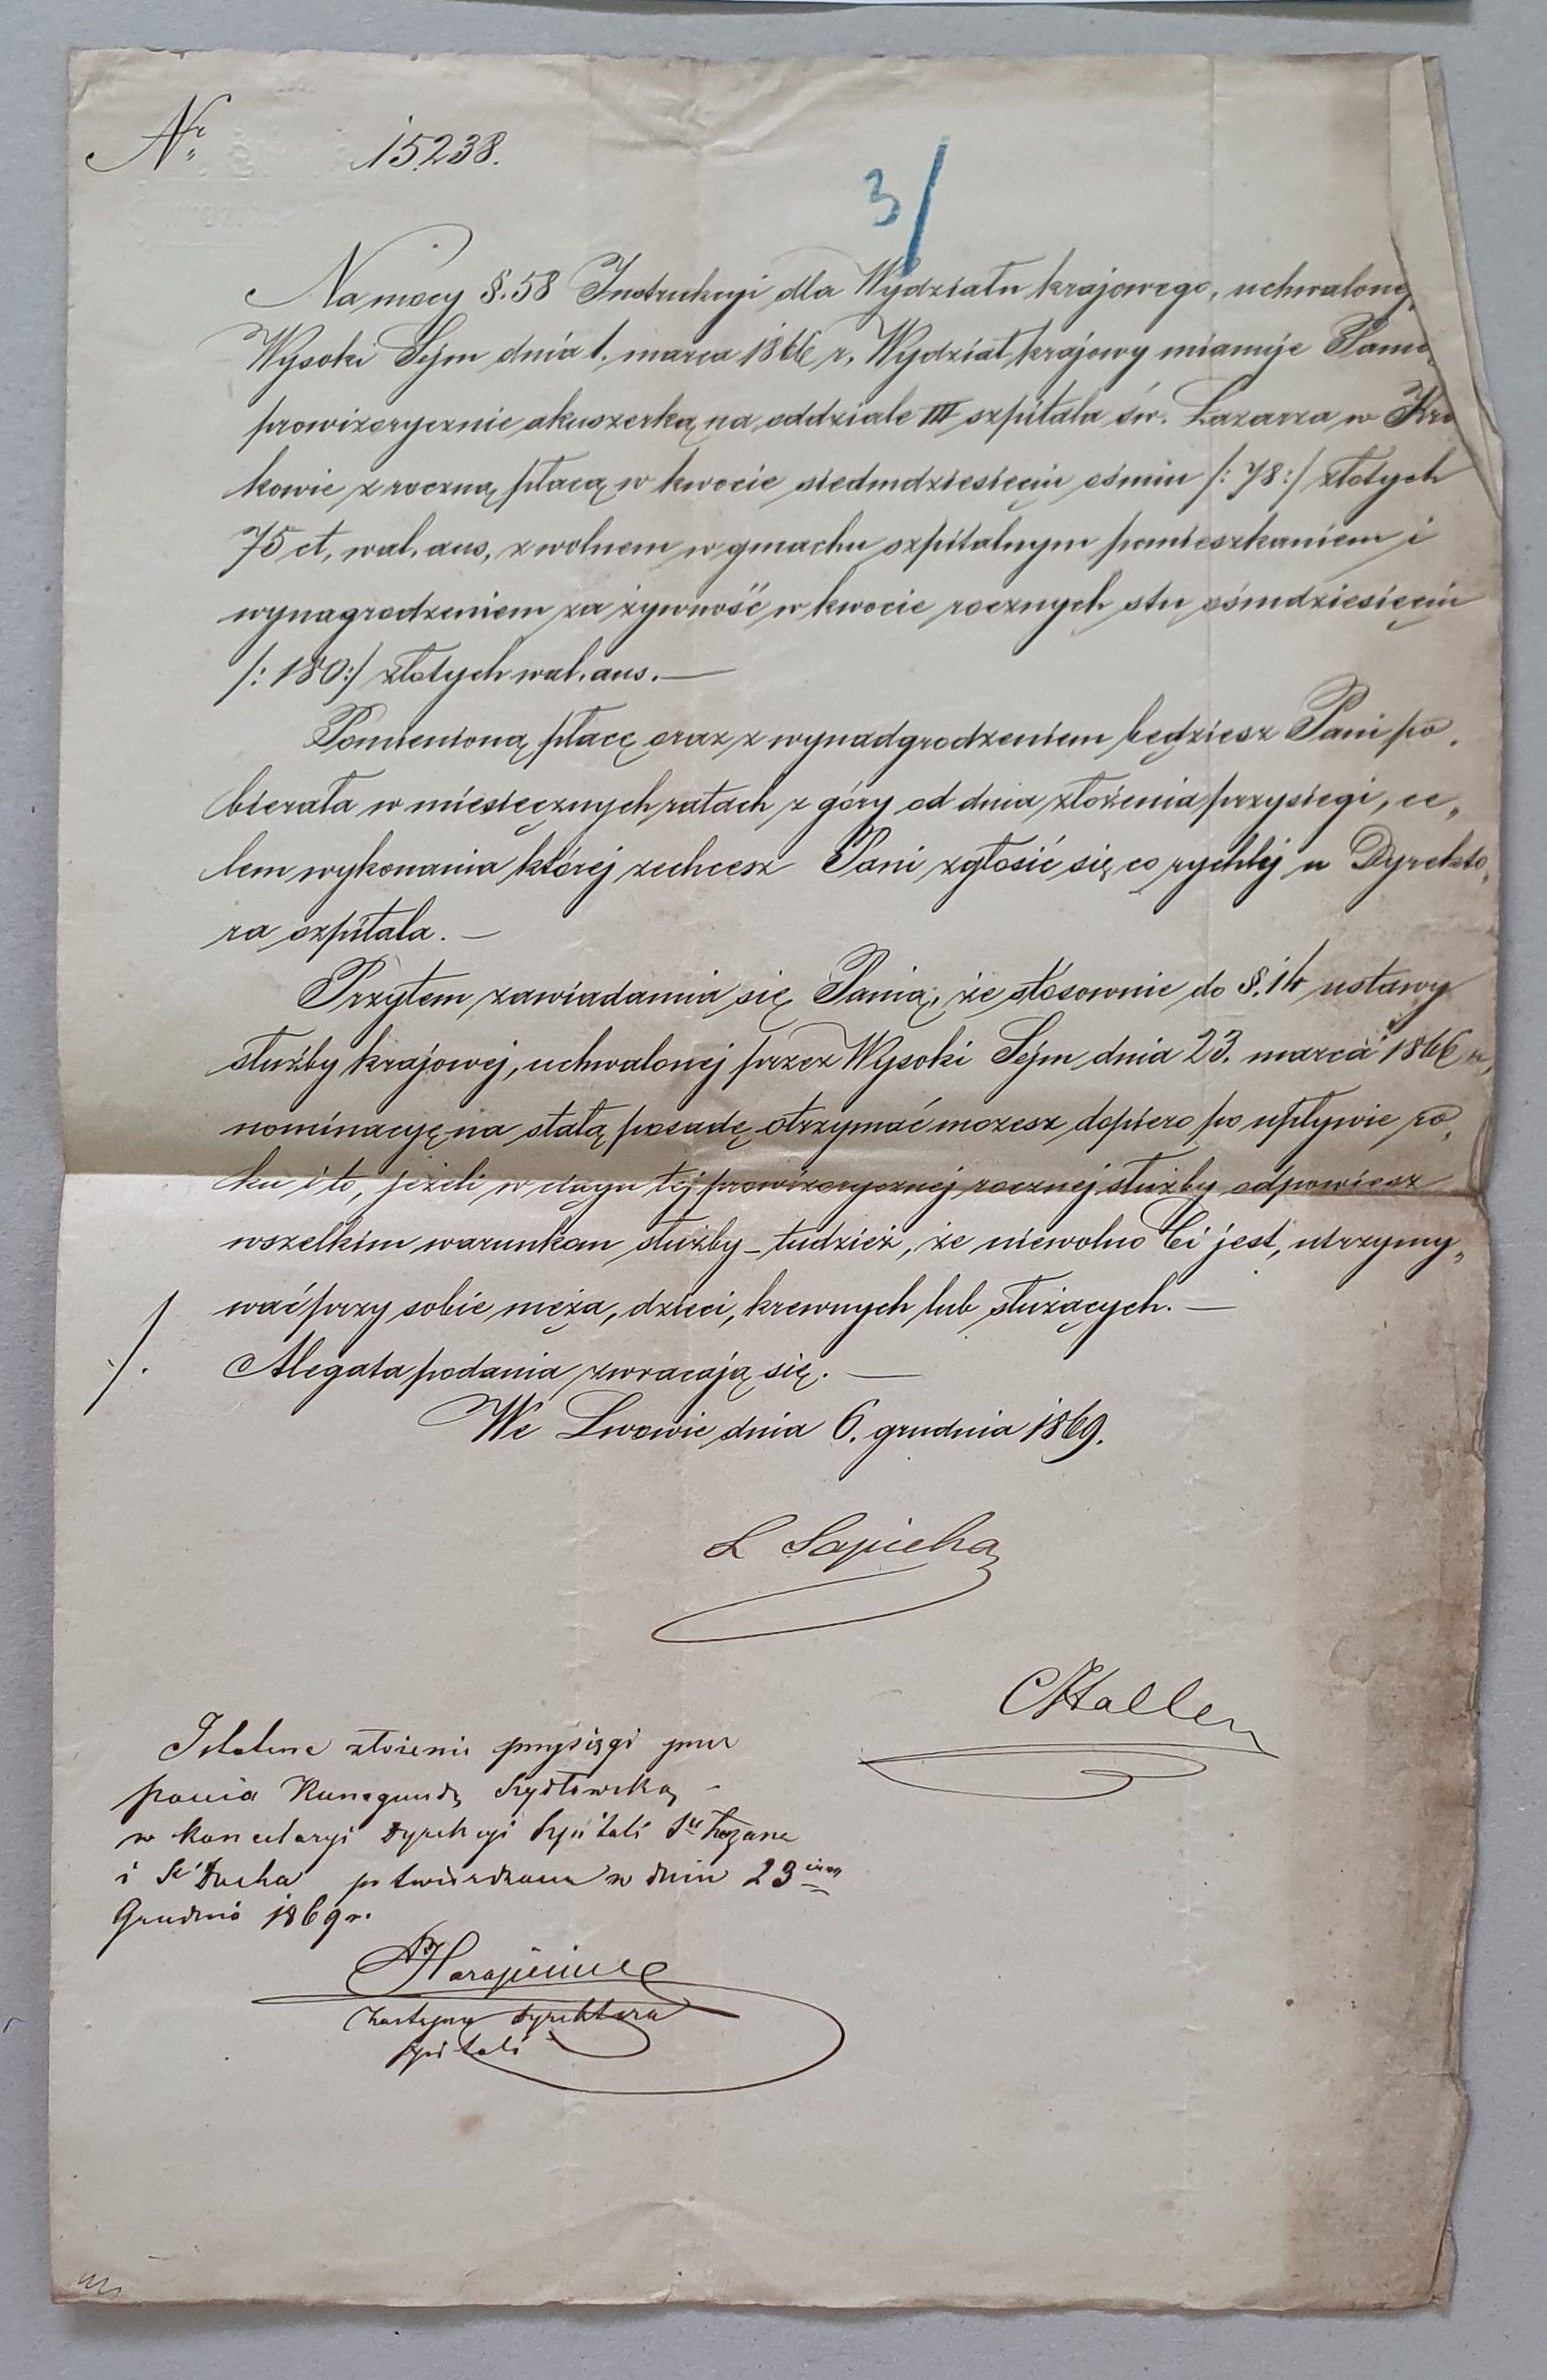 Nr. 15238.
3/
Na mocy §. 58 Instrukcyi dla Wydziału krajowego, uchwalonej
Wysoki Sejm dnia 1. marca 1866 r. Wydział krajowy mianuje
prowizorycznie akuszerką na oddziale III szpitala św. Łazarza w Kra
kowie z roczną płacą w kwocie siedmdziesięciu ośmiu /: 78 :/ złotych
75 ct. wal. aus. z wolnem w gmachu szpitalnym pomieszkaniem i
wynagrodzeniem za żywność w kwocie rocznych stu ośmdziesięciu
/: 180 :/ złotych wal. aus. —
Pomienioną płacę oraz z wynadgrodzeniem będziesz Pani po„
bierała w miesięcznych ratach z góry od dnia złożenia przysięgi, ce„
lem wykonania której zechcesz Pani zgłosić się co rychlej u Dyrekto„
ra szpitala. —
Przytem zawiadamia się Panią, że stósownie do §. 14 ustawy
służby krajowej, uchwalonej przez Wysoki Sejm dnia 23. marca 1866 r.,
nominacyę na stałą posadę otrzymać możesz dopiero po upływie ro„
ku i to, jeżeli w ciągu tej prowizorycznej rocznej służby odpowiesz
wszelkim warunkom służby – tudzież, że niewolno Ci jest, utrzymy„
wać przy sobie męża, dzieci, krewnych lub służących. —
./. Alegata podania zwracają się. —
We Lwowie dnia 6. grudnia 1869.
L Sapieha
CHaller
złożenie przysięgi przez
pania Kunegundę Szydłowską
w kancelaryi Dyrekcyi Szpitali Sgo Łazarza
i Sgo Ducha potwierdzam w dniu 23
Grudnia 1869 r.
Zastępca Dyrektora
szpitali